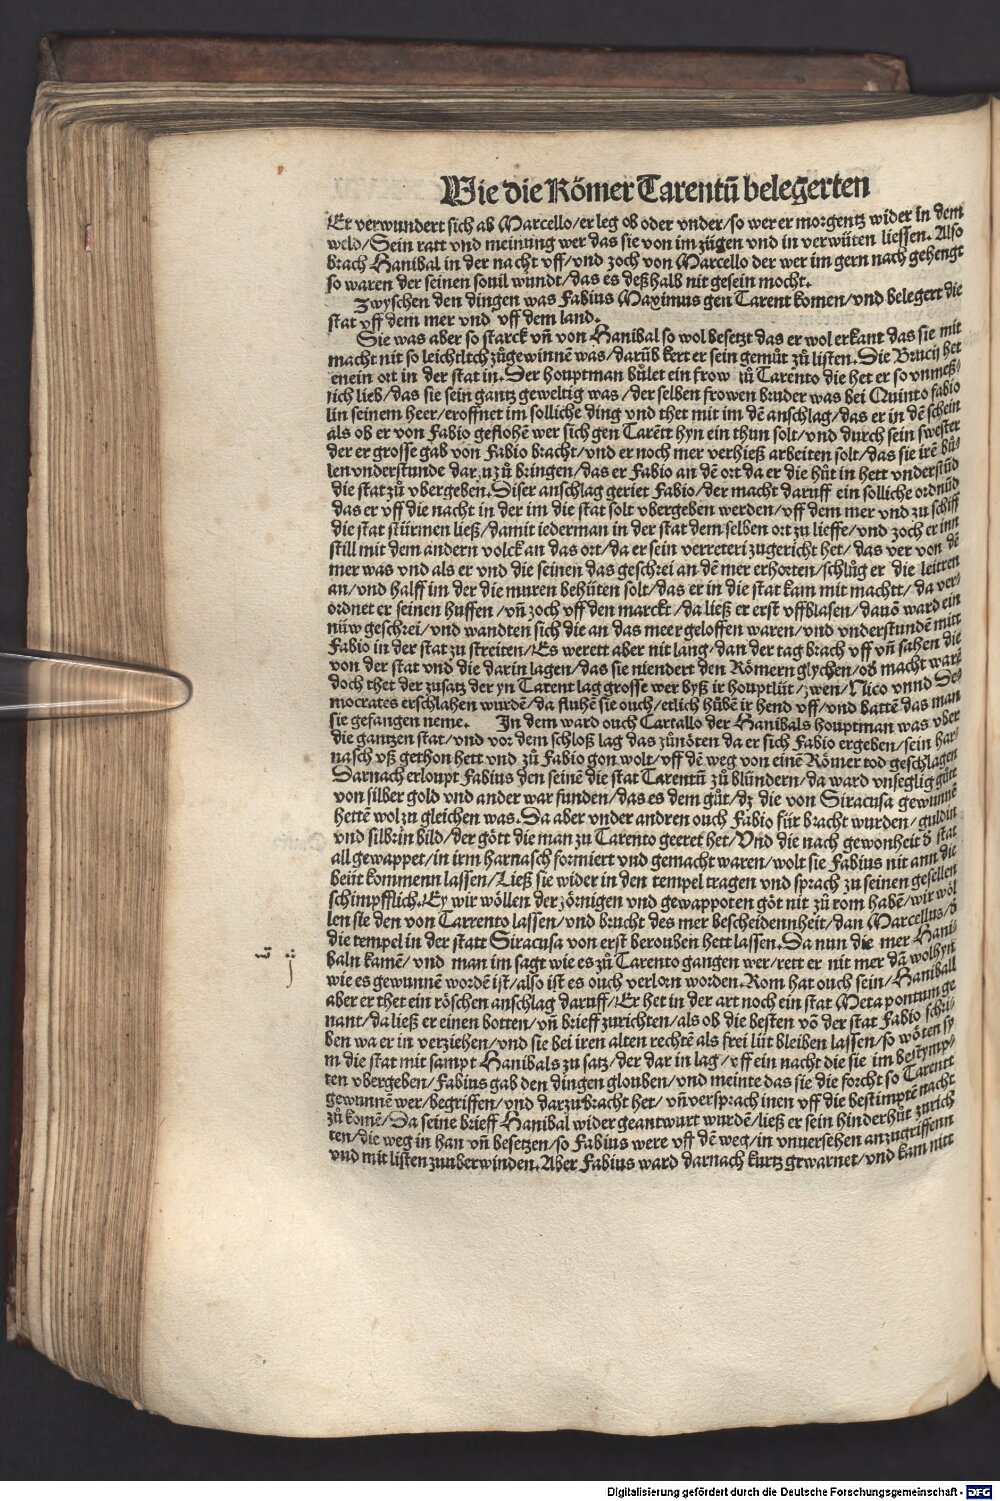 Wie die Römer Tarentū belegerten
Er verwundert sich ab Marcello/er leg ob oder vnder/so wer er morgentz wider in dem
veld/Sein ratt vnd meinung wer das sie von im zügen vnd in verwüten liessen. Also
brach Hanibal in der nacht vff/vnd zoch von Marcello der wer im gern nach gehengt
so waren der seinen souil wundt/das es deßhalb nit gesein mocht.
Zwyschen den dingen was Fabius Maximus gen Tarent komen/vnd belegert die
stat vff dem mer vnd vff dem land.
Sie was aber so starck vn̄ von Hanibal so wol besetzt das er wol erkant das sie mit
macht nit so leichtltch zůgewinnē was/darūb kert er sein gemůt zů listen. Die Brucij het
enein ort in der stat in. Der houptman bůlet ein frow zů Tarento die het er so vnmeß/
lich lieb/das sie sein gantz geweltig was/der selben frowen bruder was bei Quinto fabio
lin seinem heer/eroffnet im solliche ding vnd thet mit im dē anschlag/das er in dē schein
als ob er von Fabio geflohē wer sich gen Tarētt hyn ein thun solt/vnd durch sein swester
der er grosse gab von Fabio bracht/vnd er noch mer verhieß arbeiten solt/das sie irē bů/
len vnderstunde darzu zů bringen/das er Fabio an dē ort da er die hůt in hett vnderstūd
die stat zů vbergeben. Diser anschlag geriet Fabio/der macht daruff ein solliche ordnūd
das er vff die nacht in der im die stat solt vbergeben werden/vff dem mer vnd zu schiff
die stat stürmen ließ/damit iederman in der stat dem selben ort zu lieffe/vnd zoch er inn
still mit dem andern volck an das ort/da er sein verreteri zugericht het/das ver von dē
mer was vnd als er vnd die seinen das geschrei an dē mer erhorten/schlůg er die leitren
an/vnd halff im der die muren behüten solt/das er in die stat kam mit machtt/da ver/
ordnet er seinen huffen/vn̄ zoch vff den marckt/da ließ er erst vffblasen/dauō ward ein
nüw geschrei/vnd wandten sich die an das meer geloffen waren/vnd vnderstundē mitt
Fabio in der stat zu streiten/Es werett aber nit lang/dan der tag brach vff vn̄ sahen die
von der stat vnd die darin lagen/das sie niendert den Römern glychen/ob macht warē
doch thet der zusatz der yn Tarent lag grosse wer byß ir houptlüt/zwen/Nico vnnd De/
mocrates erschlahen wurdē/da fluhē sie ouch/etlich hůbē ir hend vff/vnd battē das man
sie gefangen neme. In dem ward ouch Cartallo der Hanibals houptman was vber
die gantzen stat/vnd vor dem schloß lag das zůnöten da er sich Fabio ergeben/sein har/
nasch vß gethon hett vnd zů Fabio gon wolt/vff dē weg von einē Römer tod geschlagen
Darnach erloupt Fabius den seinē die stat Tarentū zů blündern/da ward vnseglig gůtt
von silber gold vnd ander war funden/das es dem gůt/dz die von Siracusa gewunnē
hettē wol zu gleichen was. Da aber vnder andren ouch Fabio für bracht wurden/guldin
vnd silbrin bild/der gött die man zu Tarento geeret het/Vnd die nach gewonheit d̄ stat
all gewappet/in irm harnasch formiert vnd gemacht waren/wolt sie Fabius nit ann die
beüt kommenn lassen/Ließ sie wider in den tempel tragen vnd sprach zu seinen gesellen
schimpfflich. Ey wir wöllen der zörnigen vnd gewappoten göt nit zů rom habē/wir wöl
len sie den von Tarrento lassen/vnd brucht des mer bescheidennheit/dan Marcellus/d̄
die tempel in der statt Siracusa von erst berouben hett lassen. Da nun die mer Hani/
baln kamē/vnd man im sagt wie es zů Tarento gangen wer/rett er nit mer dā wol hyn
wie es gewunnē wordē ist/also ist es ouch verlorn worden. Rom hat ouch sein/Haniball
aber er thet ein röschen anschlag daruff/Er het in der art noch ein stat Metapontum ge
nant/da ließ er einen botten/vn̄ brieff zurichten/als ob die besten vō der stat Fabio schri/
ben wa er in verziehen/vnd sie bei iren alten rechtē als frei lüt bleiben lassen/so wöten sy
m die stat mit sampt Hanibals zu satz/der dar in lag/vff ein nacht die sie im bestymp/
ten vbergeben/Fabius gab den dingen glouben/vnd meinte das sie die forcht so Tarentt
gewunnē wer/begriffen/vnd darzu bracht het/vn̄ versprach inen vff die bestimptē nacht
zů komē/Da seine brieff Hanibal wider geantwurt wurdē/ließ er sein hinderhůt zurich
ten/die weg in han vn̄ besetzen/so Fabius were vff dē weg/in vnuersehen anzugriffenn
vnd mit listen zuuberwinden. Aber Fabius ward darnach kurtz gewarnet/vnd kam nitt
Digitalisierung gefördert durch die Deutsche Forschungsgemeinschaft - DFG